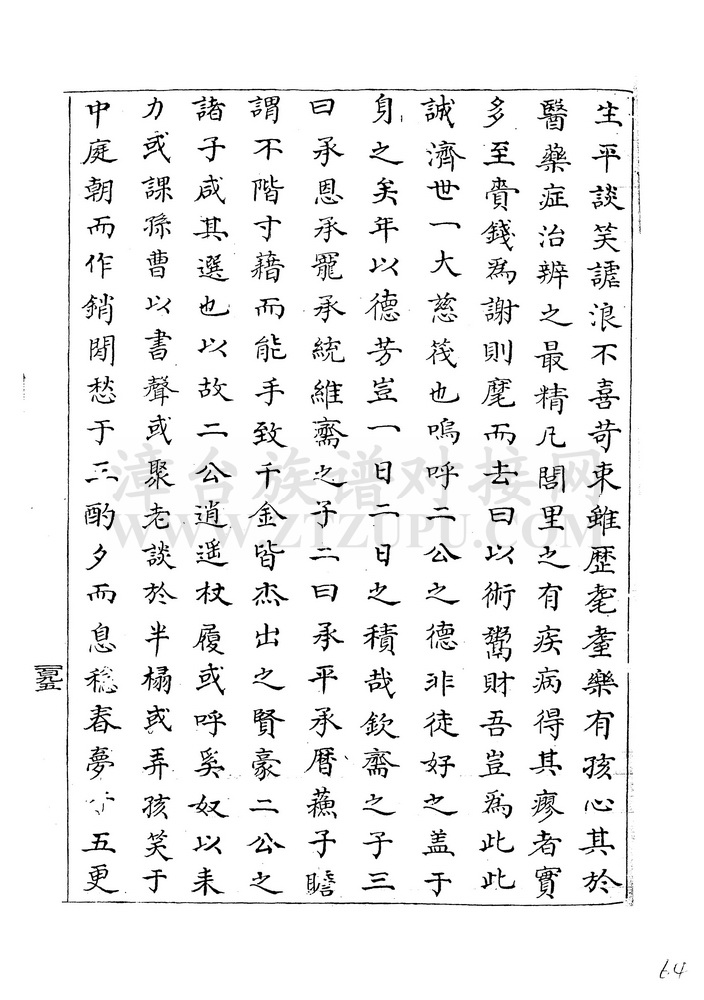 生平談笑謔浪不喜苛束雖歷耄耋樂有孩心其於
醫藥症治辨之最精凡閭里之有疾病得其瘳者實
多至賷錢爲謝則麾而去曰以術鬻財吾豈爲此此
誠濟世一大慈筏也嗚呼二公之德非徒好之盖于
身之矣年以德芳豈一日二日之積哉欽齋之子三
曰承恩承寵承統維齋之子二曰承平承曆蘓子瞻
謂不階寸藉而能手致千金皆杰出之賢豪二公之
諸子咸其選也以故二公逍遥杖履或呼奚奴以耒
力或課孫曹以書聲或聚老談於半榻或弄孩笑于
中庭朝而作銷閒愁于三酌夕而息穩春夢 五更
一百九五
漳台族谱对接网
WWW.ZTZUPU.COM
64